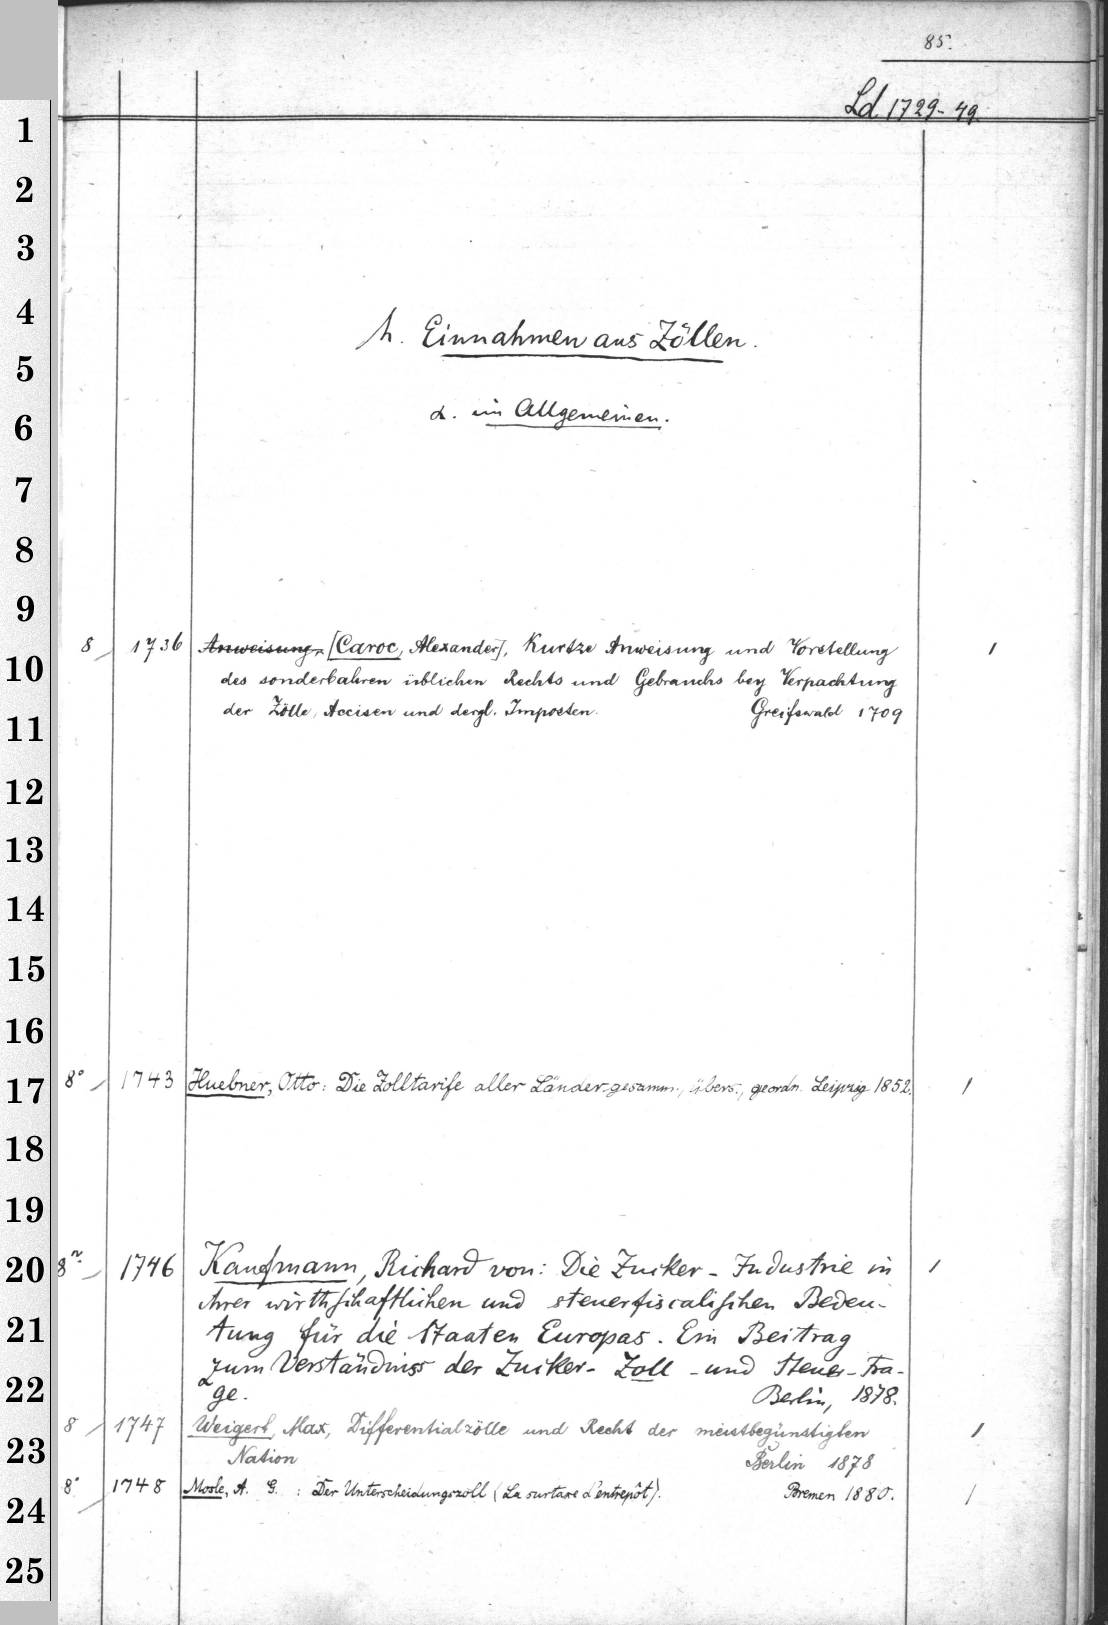 85.
Ld. 1729-49.
1
2
3
4
h. Einnahmen aus Zöllen.
5
6
α. im Allgemeinen.
7
8
9
8 1736 Anweisung, [Caroc, Alexander], Kurtze Anweisung und Vorstellung 1
10
des sonderbahren üblichen Rechts und Gebrauchs bey Verpachtung
der Zölle, Accisen und dergl. Imposten. Greifswald 1709
11
12
13
14
15
16
17
8° 1743 Huebner, Otto: Die Zolltarife aller Länder gesamm., übers., geordn. Leipzig 1852. 1
18
19
20
8° 1746 Kaufmann, Richard von: Die Zucker-Industrie in 1
ihrer wirthschaftlichen und steuerfiscalischen Bedeu-
21
tung für die Staaten Europas. Ein Beitrag
zum Verständniss der Zucker-Zoll-und Steuer-Fra-
22
ge. Berlin, 1878.
8 1747 Weigert, Max, Differentialzölle und Recht der meistbegünstigten 1
23
Nation Berlin 1878
8° 1748 Mosle, A. G. : Der Unterscheidungszoll (La surtaxe d'entrepôt). Bremen 1880. 1
24
25